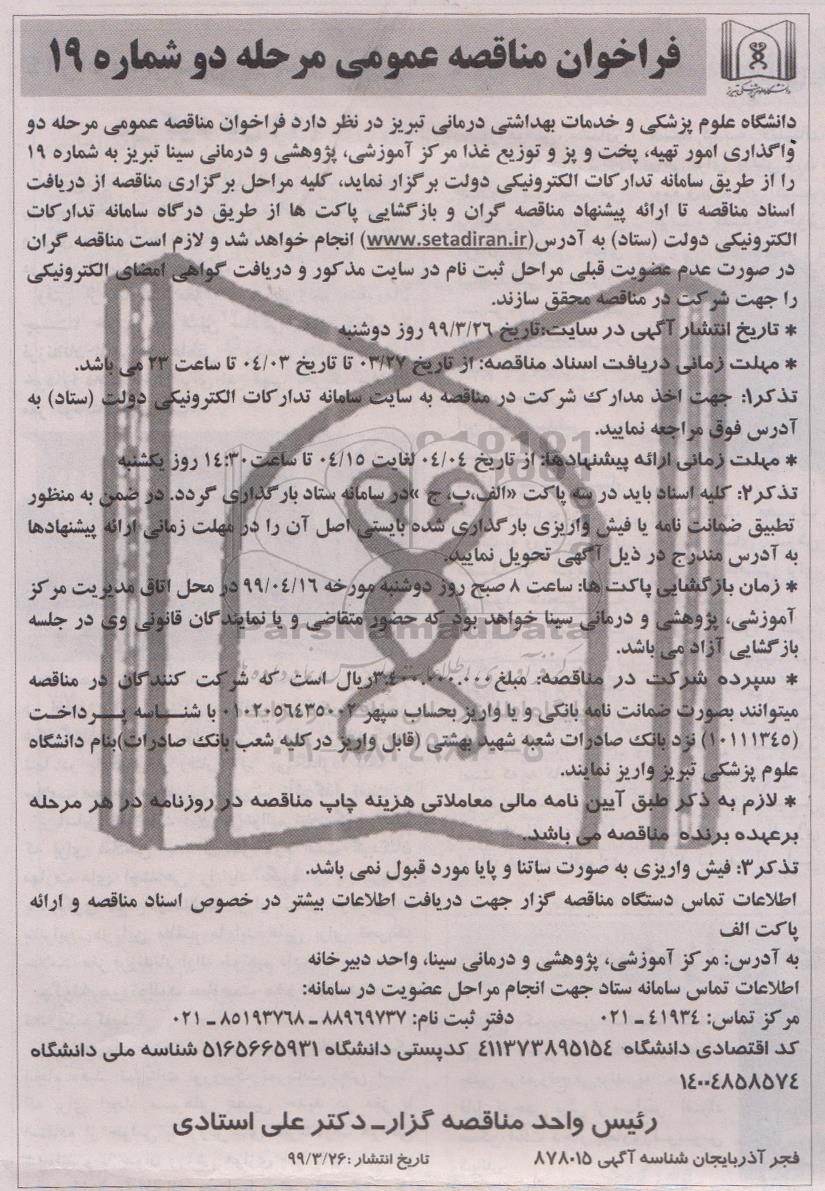 فراخوان مناقصه عمومی مرحله دو شماره ۱۹
دانشگاه علوم پزشکی و خدمات بهداشتی درمانی تبریز در نظر دارد فراخوان مناقصه عمومی مرحله دو
واگذاری امور تهیه، پخت و پز و توزیع غذا مرکز آموزشی، پژوهشی و درمانی سینا تبریز به شماره ۱۹
را از طریق سامانه تدارکات الکترونیکی دولت برگزار نماید، کلیه مراحل برگزاری مناقصه از دریافت
اسناد مناقصه تا ارائه پیشنهاد مناقصه گران و بازگشایی پاکت ها از طریق درگاه سامانه تدارکات
الکترونیکی دولت (ستاد) به آدرس(www.setadiran.ir) انجام خواهد شد و لازم است مناقصه گران
در صورت عدم عضویت قبلی مراحل ثبت نام در سایت مذکور و دریافت گواهی امضای الکترونیکی
را جهت شرکت در مناقصه محقق سازند.
* تاریخ انتشار آگهی در سایت:تاریخ ۹۹/۳/۲۶ روز دوشنبه
* مهلت زمانی دریافت اسناد مناقصه: از تاریخ ۰۳/۲۷ تا تاریخ ۰۴/۰۳ تا ساعت ۲۳ می باشد.
تذکر۱: جهت اخذ مدارک شرکت در مناقصه به سایت سامانه تدارکات الکترونیکی دولت (ستاد) به
آدرس فوق مراجعه نمایید.
* مهلت زمانی ارائه پیشنهادها: از تاریخ ۰۴/۰۴ لغایت ۰۴/۱۵ تا ساعت۱۴:۳۰ روز یکشنبه
تذکر۲: کلیه اسناد باید در سه پاکت «الف،ب، ج »در سامانه ستاد بارگذاری گردد. در ضمن به منظور
تطبیق ضمانت نامه یا فیش واریزی بارگذاری شده بایستی اصل آن را در مهلت زمانی ارائه پیشنهادها
به آدرس مندرج در ذیل آگهی تحویل نمایید.
* زمان بازگشایی پاکت ها: ساعت ۸ صبح روز دوشنبه مورخه ۹۹/۰۴/۱۶ در محل اتاق مدیریت مرکز
آموزشی، پژوهشی و درمانی سینا خواهد بود که حضور متقاضی و یا نمایندگان قانونی وی در جلسه
بازگشایی آزاد می باشد.
ParsNamadData
* سپرده شرکت در مناقصه: مبلغ۳.۴۰۰.۰۰۰.۰۰۰ریال است که شرکت کنندگان در مناقصه
میتوانند بصورت ضمانت نامه بانکی و یا واریز بحساب سپهر ۰۱۰۲۰۵۶۴۳۵۰۰۲ با شناسه پرداخت
(۱۰۱۱۱۳۴۵) نزد بانک صادرات شعبه شهید بهشتی (قابل واریز در کلیه شعب بانک صادرات)بنام دانشگاه
علوم پزشکی تبریز واریز نمایند.
* لازم به ذکر طبق آیین نامه مالی معاملاتی هزینه چاپ مناقصه در روزنامه در هر مرحله
برعهده برنده مناقصه می باشد.
تذکر۳: فیش واریزی به صورت ساتنا و پایا مورد قبول نمی باشد.
اطلاعات تماس دستگاه مناقصه گزار جهت دریافت اطلاعات بیشتر در خصوص اسناد مناقصه و ارائه
پاکت الف
به آدرس: مرکز آموزشی، پژوهشی و درمانی سینا، واحد دبیرخانه
اطلاعات تماس سامانه ستاد جهت انجام مراحل عضویت در سامانه:
مرکز تماس: ۴۱۹۳۴ ـ ۰۲۱ دفتر ثبت نام: ۸۸۹۶۹۷۳۷ ـ ۸۵۱۹۳۷۶۸ ـ ۰۲۱
کد اقتصادی دانشگاه ۴۱۱۳۷۳۸۹۵۱۵۴ کدپستی دانشگاه ۵۱۶۵۶۶۵۹۳۱ شناسه ملی دانشگاه
۱۴۰۰۴۸۵۸۵۷۴
رئیس واحد مناقصه گزار ـ دکتر علی استادی
فجر آذربایجان شناسه آگهی ۸۷۸۰۱۵ تاریخ انتشار :۹۹/۳/۲۶